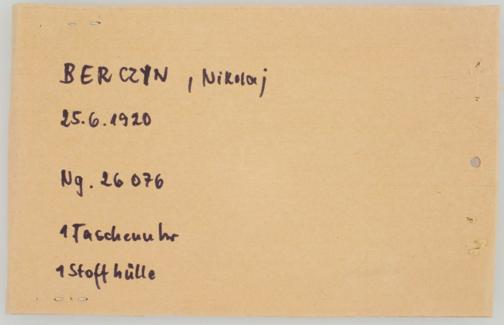 BERCZYN, Nikolaj
25.6.1920
Ng. 26 076
1 Taschenuhr
1 Stoffhülle